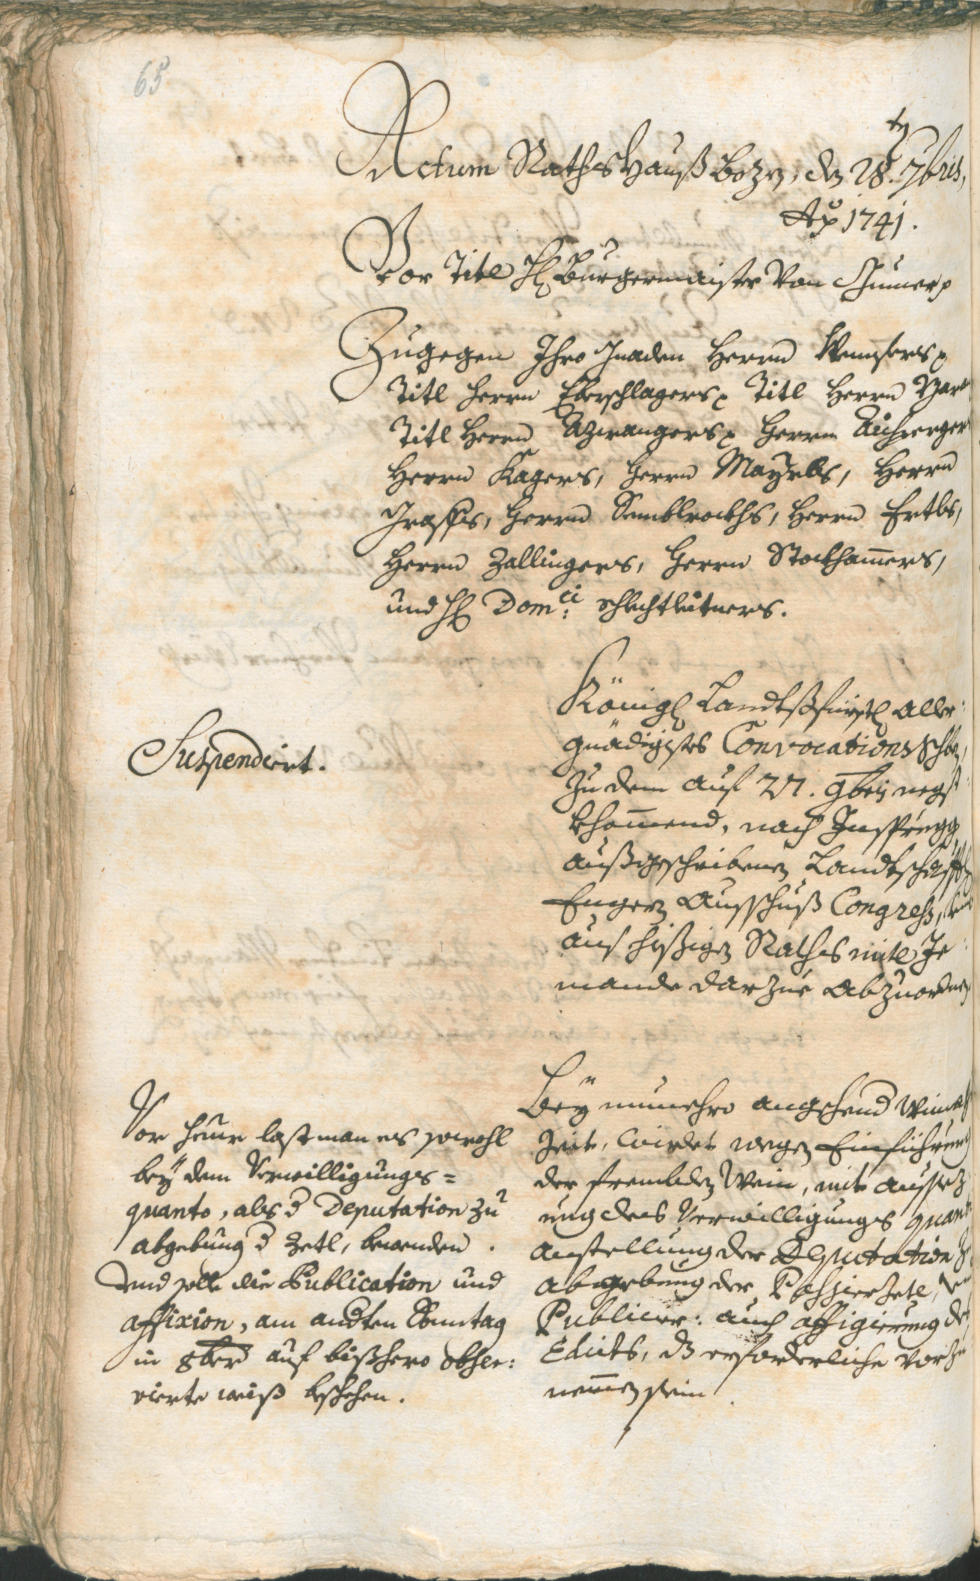 65
Actum Rathshauß Bozen, den 28.ten 7bris,
Ao 1741.
Vor Titl H: Burgermaister von Chumer p
Zugegen Ihro Gnaden Herrn Wenserss p
Titl Herrn Eberschlagers p Titl Herrn
Titl Herrn Azwangers p Herrn Aichperger
Herrn Kagers, Herrn Mayrls, Herrn
Grassis, Herrn Semblrockhs, Herrn Ertls,
Herrn Zallingers, Herrn Stockhamers,
und H: Domci: Schlechtleitners.
Suspendirt.
Königl Landtsfürstl aller
gnädigistes Convocations Schben,
zu dem auf 27. 9br negst
khomend, nach Insprugg
außgeschribenen Landtschafft
Engern Ausschuß Congress,
aus hießigen Rathsmitl Je
mande darzue abzuordnen
Vor heur last man es sowohl
bey dem Verwilligungs=
quanto, als d Deputation zu
abgebung d Zetl, bewenden.
Und solle die Publication und
affixion, am andten Sonntag
in 8ber auf bißhero obser:
vierte weiß beschehen.
Bey nunmehro angehend Wimath
Zeit, würdet wegen Einführung
der frembden Wein, mit aussez
ung des Verwilligungs quanti
anstellung der Deputation z
abgebung der Passierzetl,
Publicier: auch affigierung des
Edicts, ds erforderliche vorzu
nemmen sein.